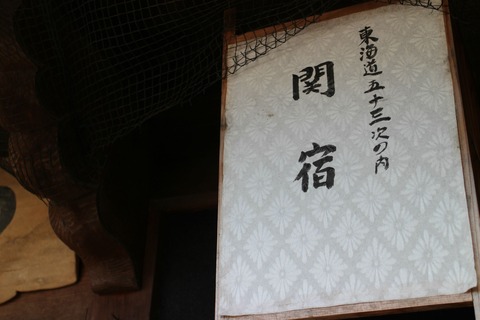 東海道五十三次の内
関宿